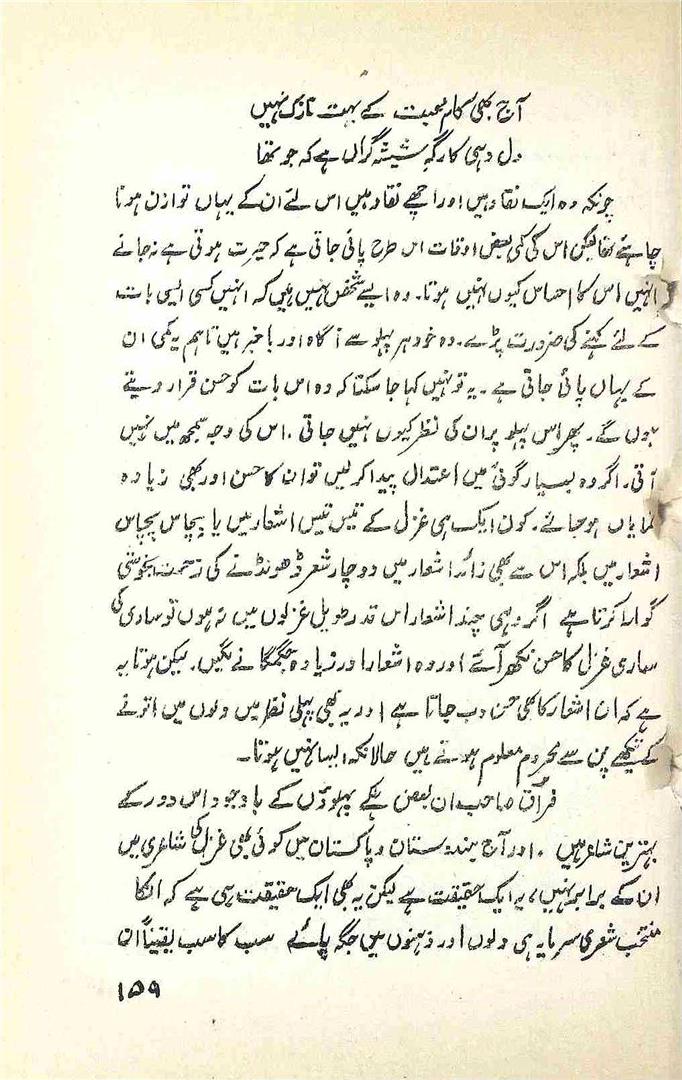 آج بھی کام محبت کے بہت نازک نہیں
دل وہی کارگہِ شیشہ گراں ہے کہ جو تھا
چونکہ وہ ایک نقاد ہیں اور اچھے نقاد ہیں اس لئے ان کے یہاں توازن ہونا
چاہئے تھا لیکن اس کی کمی بعض اوقات اس طرح پائی جاتی ہے کہ حیرت ہوتی ہے نہ جانے
انہیں اس کا احساس کیوں نہیں ہوتا۔ وہ ایسے شخص نہیں ہیں کہ انہیں کسی ایسی بات
کے لئے کہنے کی ضرورت پڑے۔ وہ خود ہر پہلو سے آگاہ اور باخبر ہیں تاہم یہ کمی ان
کے یہاں پائی جاتی ہے۔ یہ تو نہیں کہا جا سکتا کہ وہ اس بات کو حسن قرار دیتے
ہوں گے۔ پھر اس پہلو پر ان کی نظر کیوں نہیں جاتی۔ اس کی وجہ سمجھ میں نہیں
آتی۔ اگر وہ بسیار گوئی میں اعتدال پیدا کر لیں تو ان کا حسن اور بھی زیادہ
نمایاں ہو جائے۔ کون ایک ہی غزل کے تیس تیس اشعار میں یا پچاس پچاس
اشعار میں بلکہ اس سے بھی زائد اشعار میں دو چار شعر ڈھونڈنے کی زحمت بخوشی
گوارا کرتا ہے اگر وہی چند اشعار اس قدر طویل غزلوں میں نہ ہوں تو ساری کی
ساری غزل کا حسن نکھر آئے اور وہ اشعار اور زیادہ جگمگانے لگیں۔ لیکن ہوتا یہ
ہے کہ ان اشعار کا بھی حسن دب جاتا ہے اور یہ بھی پہلی نظر میں دلوں میں اترنے
کے تیکھے پن سے محروم معلوم ہوتے ہیں حالانکہ ایسا نہیں ہوتا۔
فراق صاحب ان بعض ہلکے پہلوؤں کے باوجود اس دور کے
بہترین شاعر ہیں۔ اور آج ہندوستان و پاکستان میں کوئی بھی غزل کی شاعری میں
ان کے برابر نہیں، یہ ایک حقیقت ہے لیکن یہ بھی ایک حقیقت ہی ہے کہ انکا
منتخب شعری سرمایہ ہی دلوں اور ذہنوں میں جگہ پائے سب کا سب یقیناً ان
۱۵۹